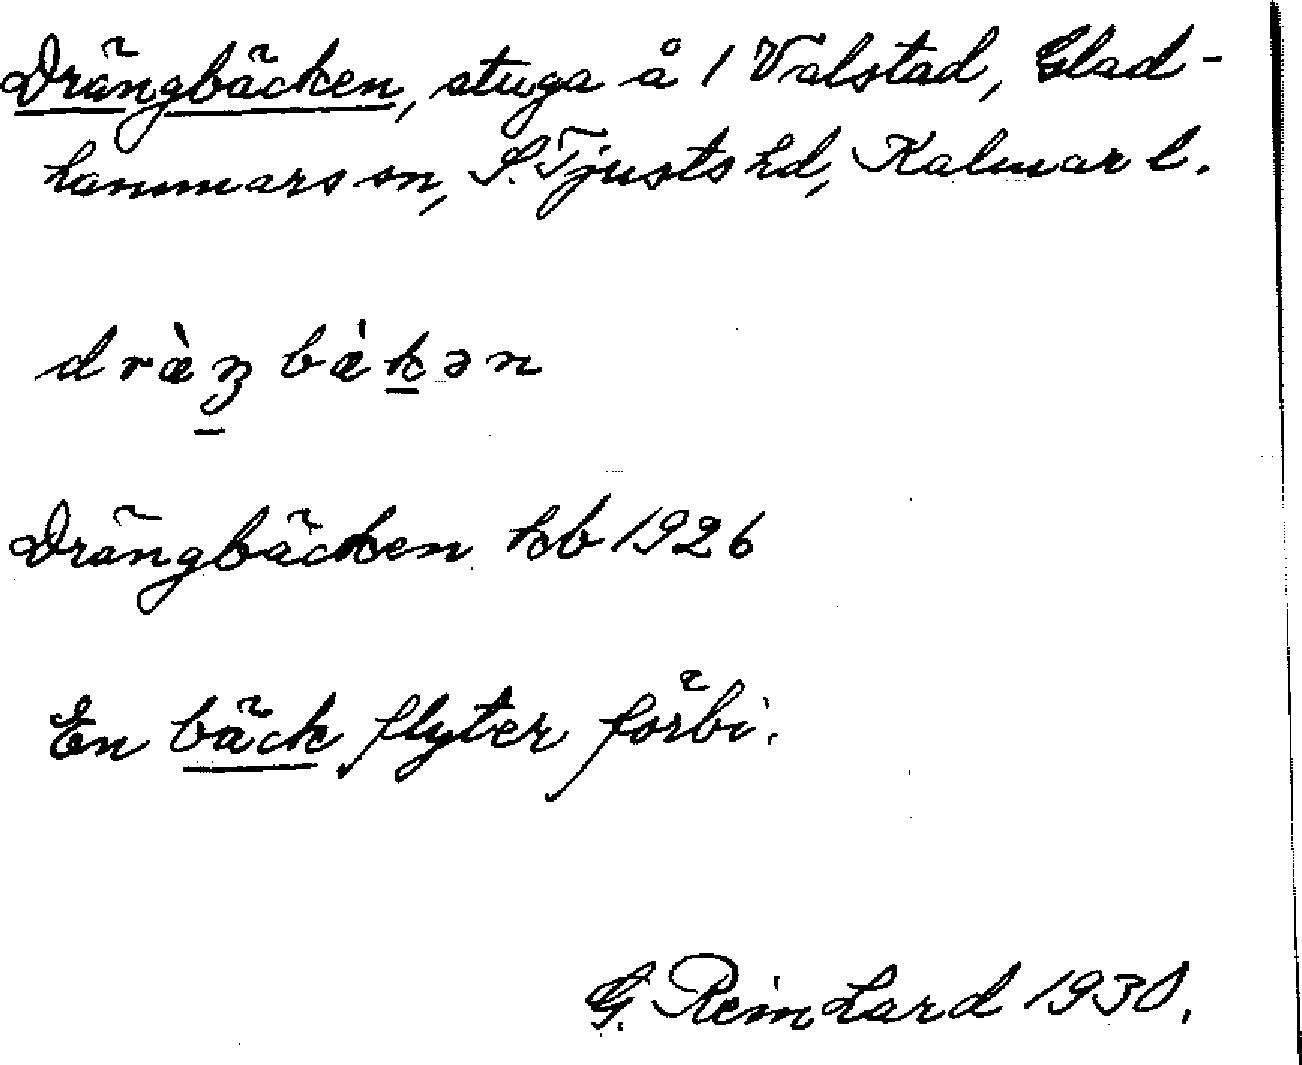 Drängbäcken, stuga å 1 Valstad, Glad-
hammars sn, S. Tjusts hd, Kalmar l.
Drängbäcken kb 1926
En bäck flyter förbi.
G. Reinhard 1930.